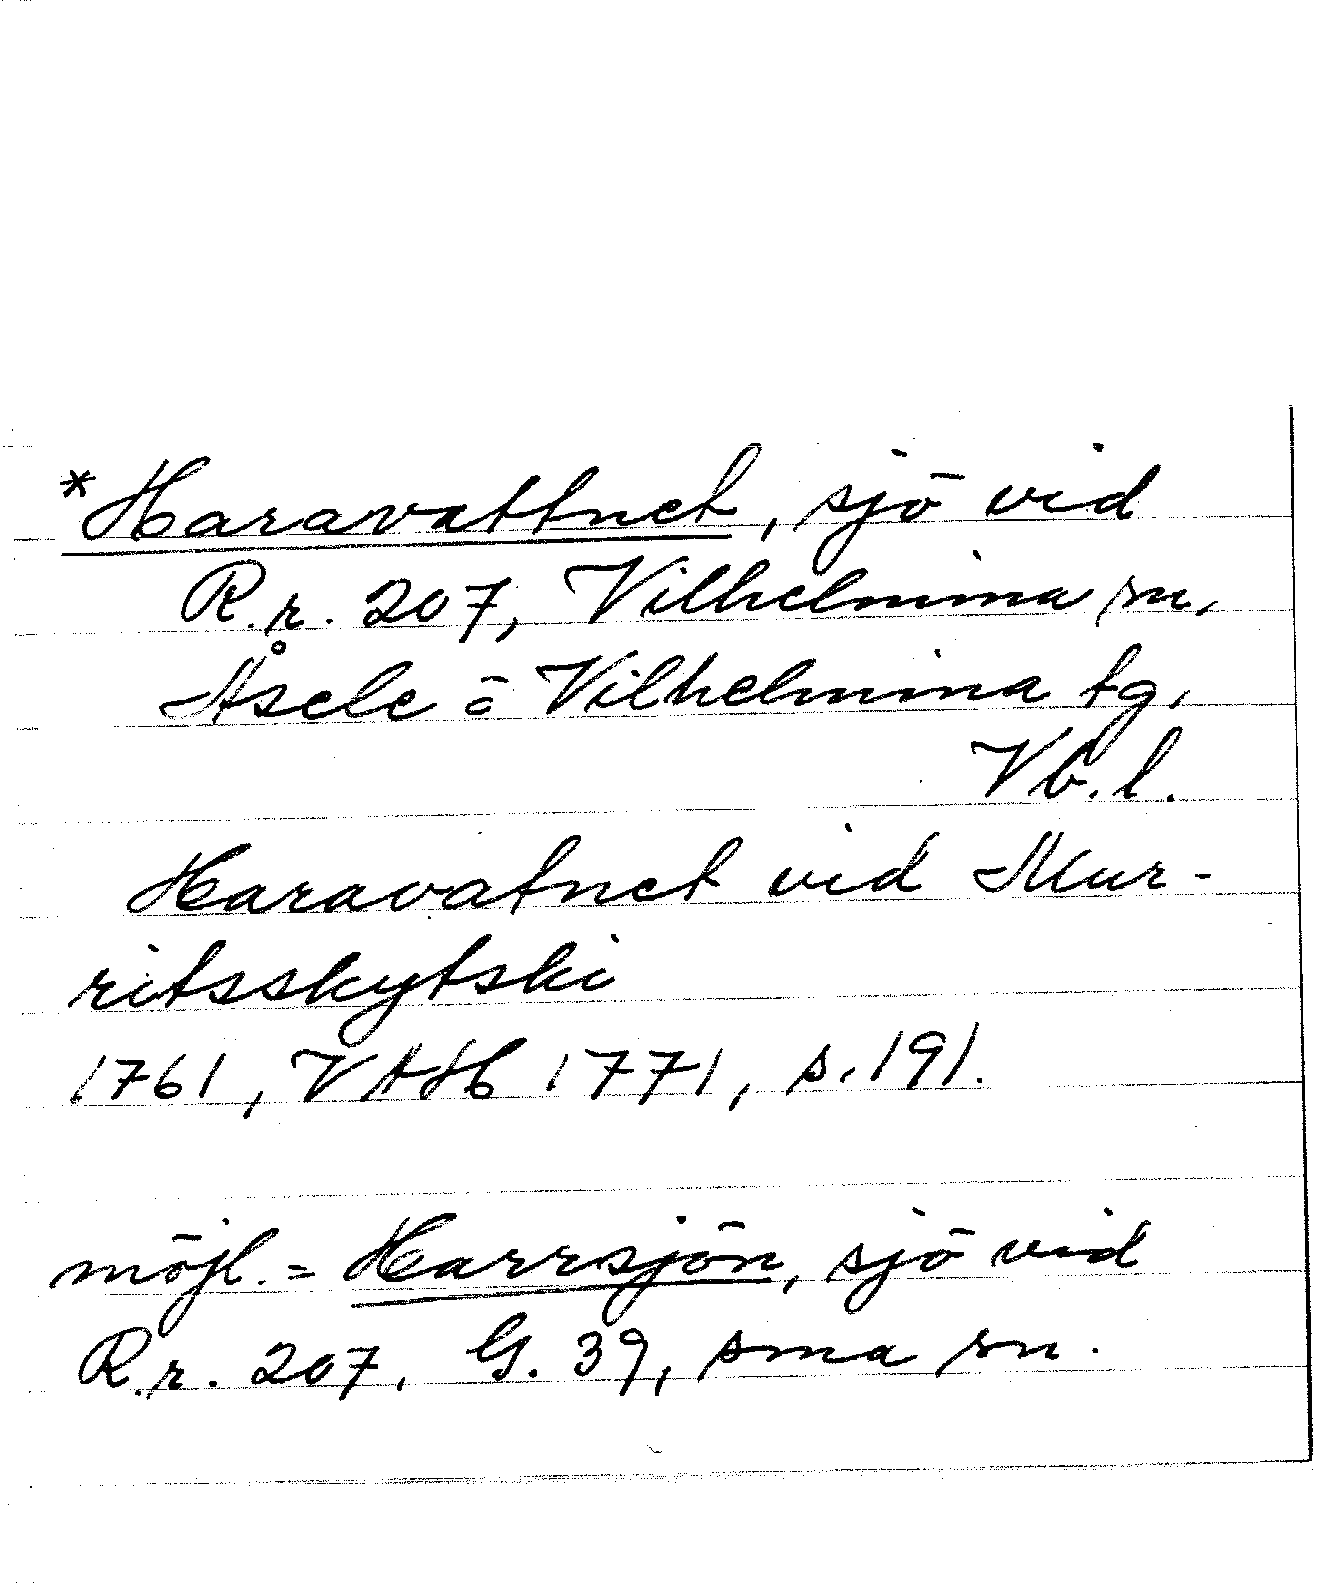 *Haravattnet, sjö vid
R.r. 207, Vilhelmina sn,
Åsele o Vilhelmina tg,
Vb. l.
Haravatnet vid Mur-
ritsskytski
1761, VAH 1771, s. 191.
möjl. = Harrsjön, sjö vid
R.r. 207, G. 39, sma sn.